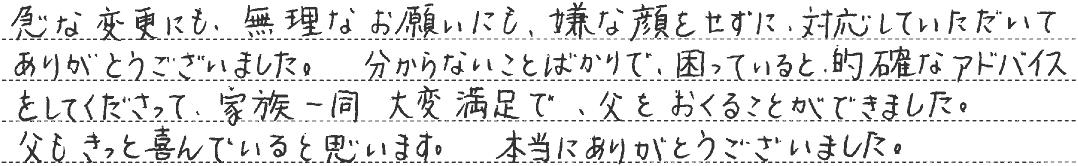 急な変更にも、無理なお願いにも、嫌な顔をせずに、対応していただいて
ありがとうございました。　分からないことばかりで、困っていると、的確なアドバイス
をしてくださって、家族一同　大変満足で、父をおくることができました。
父もきっと喜んでいると思います。　本当にありがとうございました。